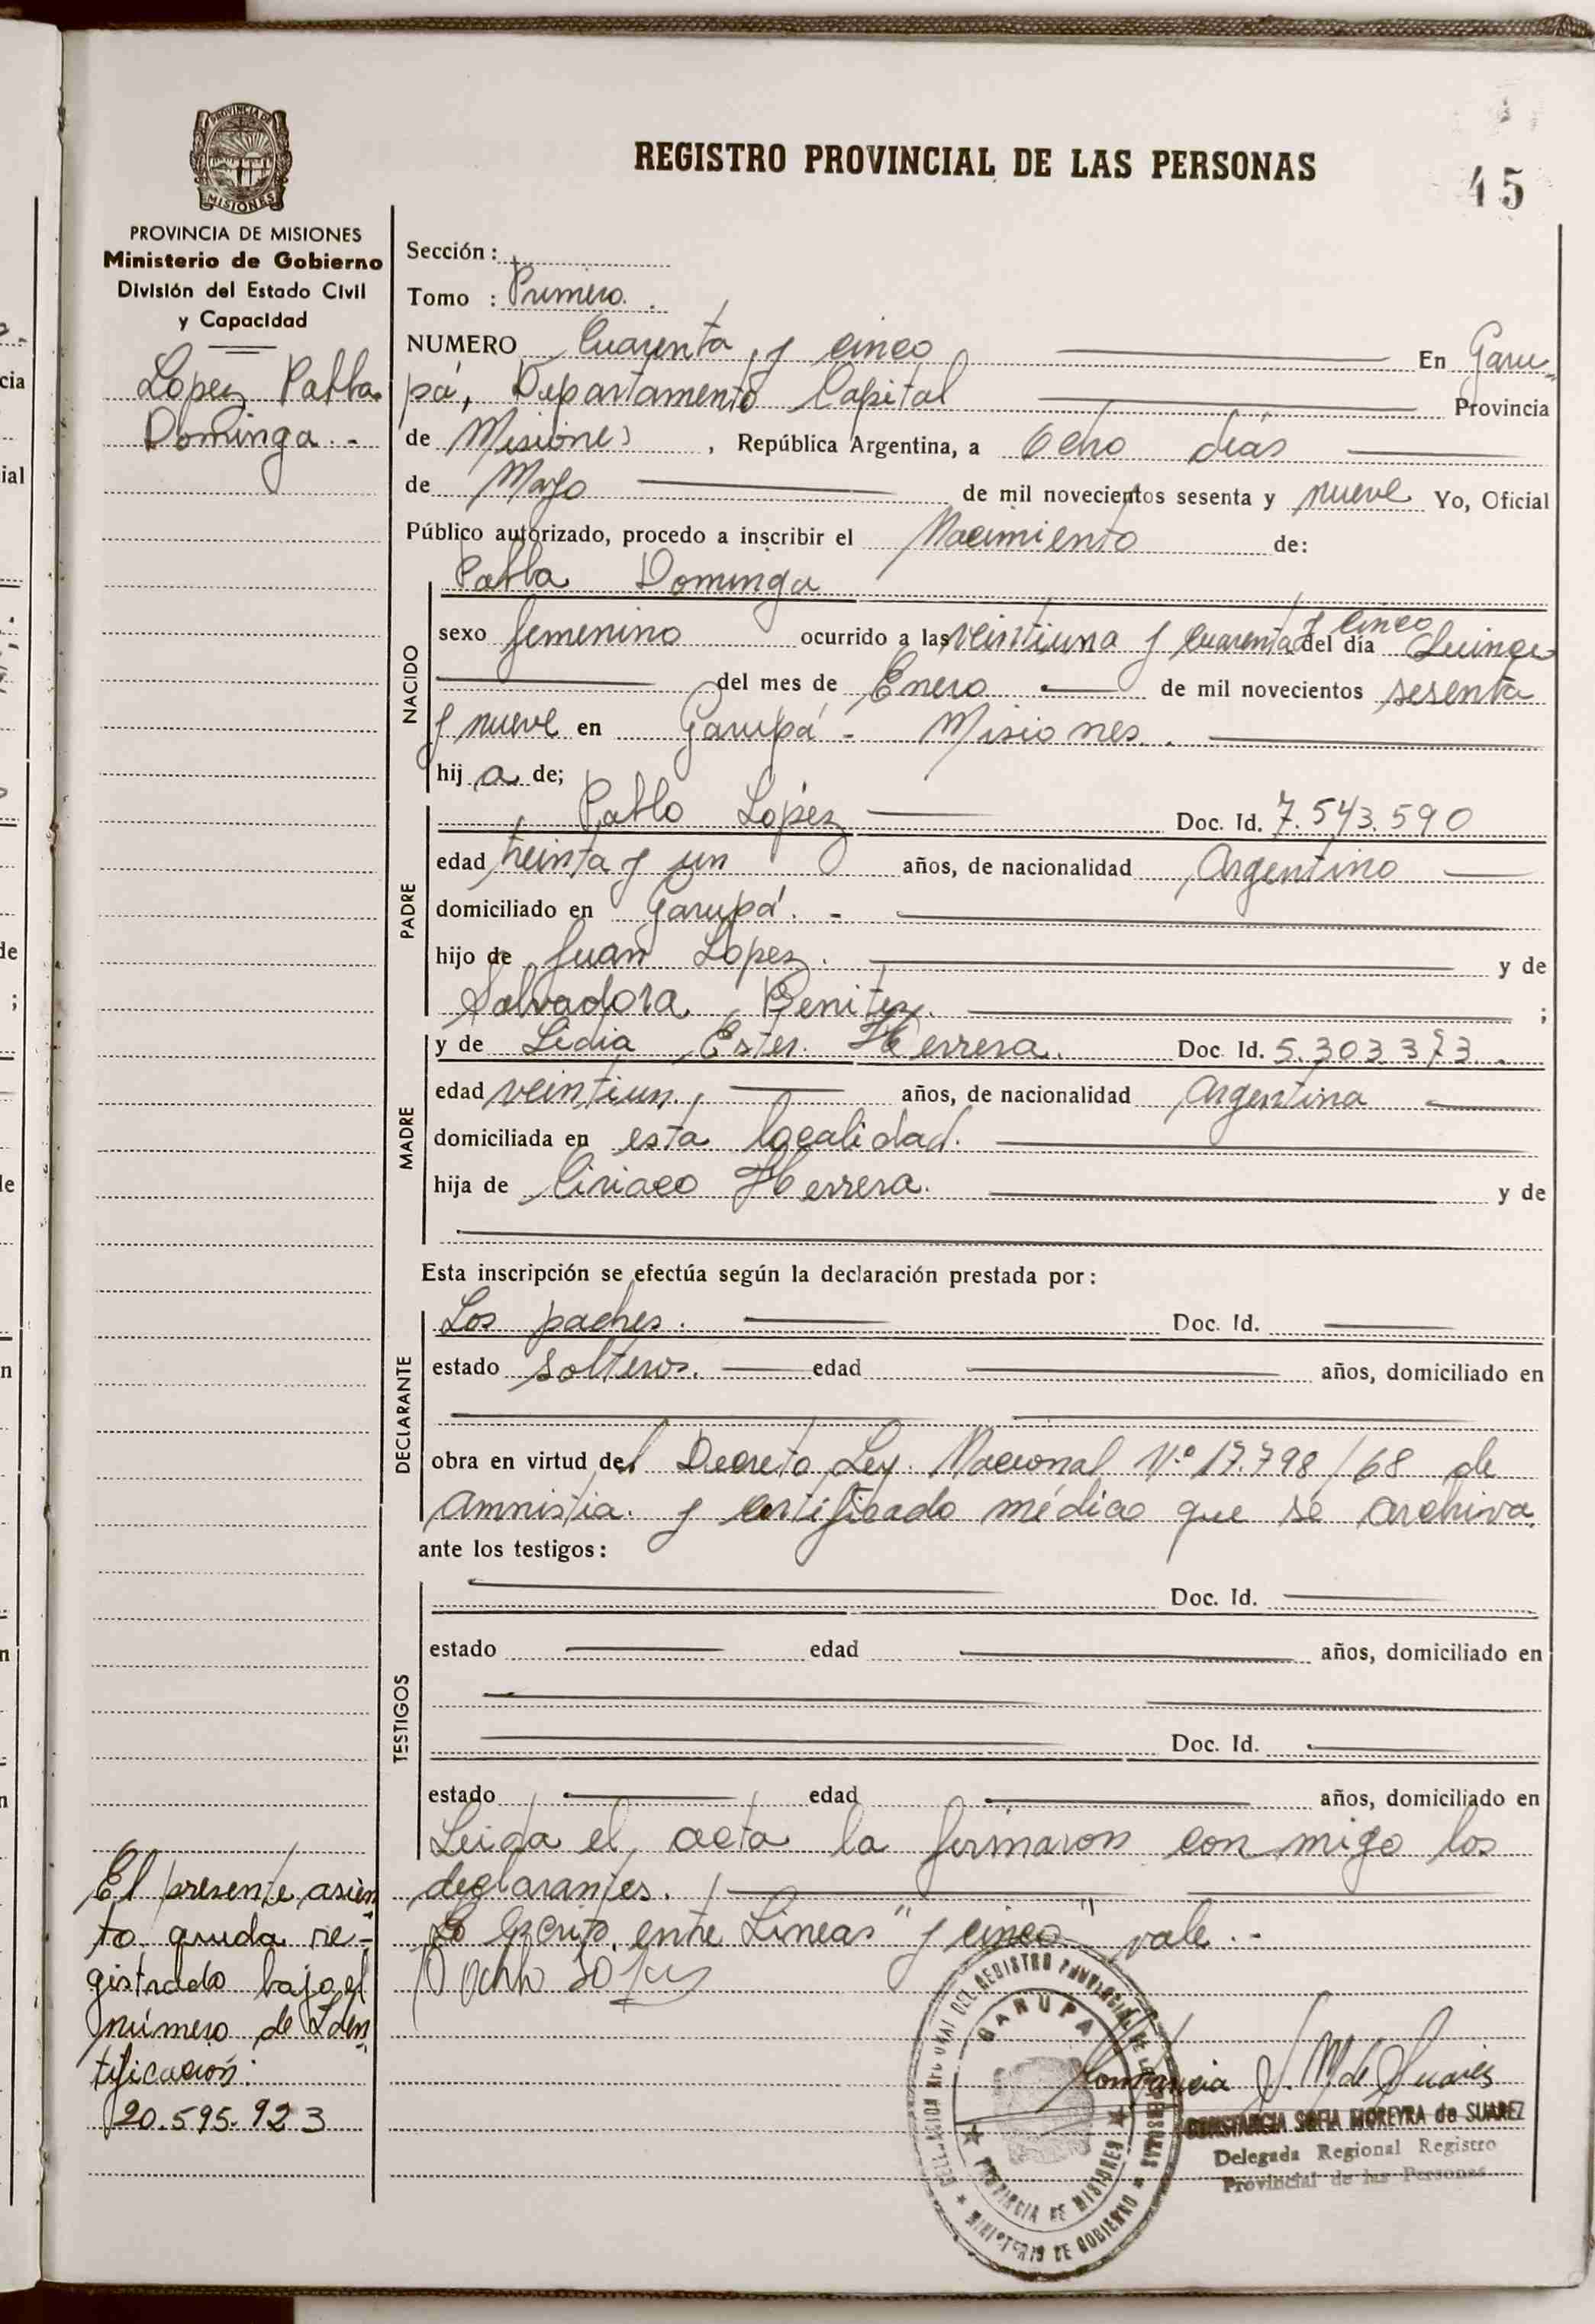 REGISTRO PROVINCIAL DE LAS PERSONAS
45
PROVINCIA DE
MISIONES
PROVINCIA DE MISIONES
Ministerio de Gobierno
División del Estado Civil
y Capacidad
Lopez Pabla
Dominga. -
Sección :
Tomo : Primero.
NUMERO Cuarenta y cinco En Garu-
pá, Departamento Capital Provincia
de Misiones , República Argentina, a Ocho días
de Mayo de mil novecientos sesenta y nueve Yo, Oficial
Público autorizado, procedo a inscribir el Nacimiento de:
NACIDO
Pabla Dominga
y cinco
sexo femenino ocurrido a las veintiuna y cuarenta del día Quince
del mes de Enero de mil novecientos sesenta
y nueve en Garupá - Misiones.
hij a de;
PADRE
Pablo López Doc. Id. 7.543.590
edad treinta y un años, de nacionalidad Argentino
domiciliado en Garupá. -
hijo de Juan López. y de
Salvadora Benitez. ;
MADRE
y de Lidia Ester Herrera. Doc. Id. 5.303.373.
edad veintiun. años, de nacionalidad Argentina
domiciliada en esta localidad.
hija de Ciriaco Herrera. y de
Esta inscripción se efectúa según la declaración prestada por :
DECLARANTE
Los padres. Doc. Id.
estado solteros. edad años, domiciliado en
obra en virtud del Decreto Ley Nacional Nº 17.798/68 de
amnistia. y certificado médico que se archiva.
ante los testigos :
TESTIGOS
Doc. Id.
estado edad años, domiciliado en
Doc. Id.
estado edad años, domiciliado en
Leida el acta la firmaron con migo los
declarantes.
Lo escrito entre Lineas "y cinco" vale. -
El presente asien-
to queda re-
gistrado bajo el
número de Iden-
tificación:
20.595.923
GARUPA
PROVINCIA DE MISIONES
MINISTERIO DE GOBIERNO
Constancia S. M. de Suarez
CONSTANCIA SOFIA MOREYRA de SUAREZ
Delegada Regional Registro
Provincial de las Personas